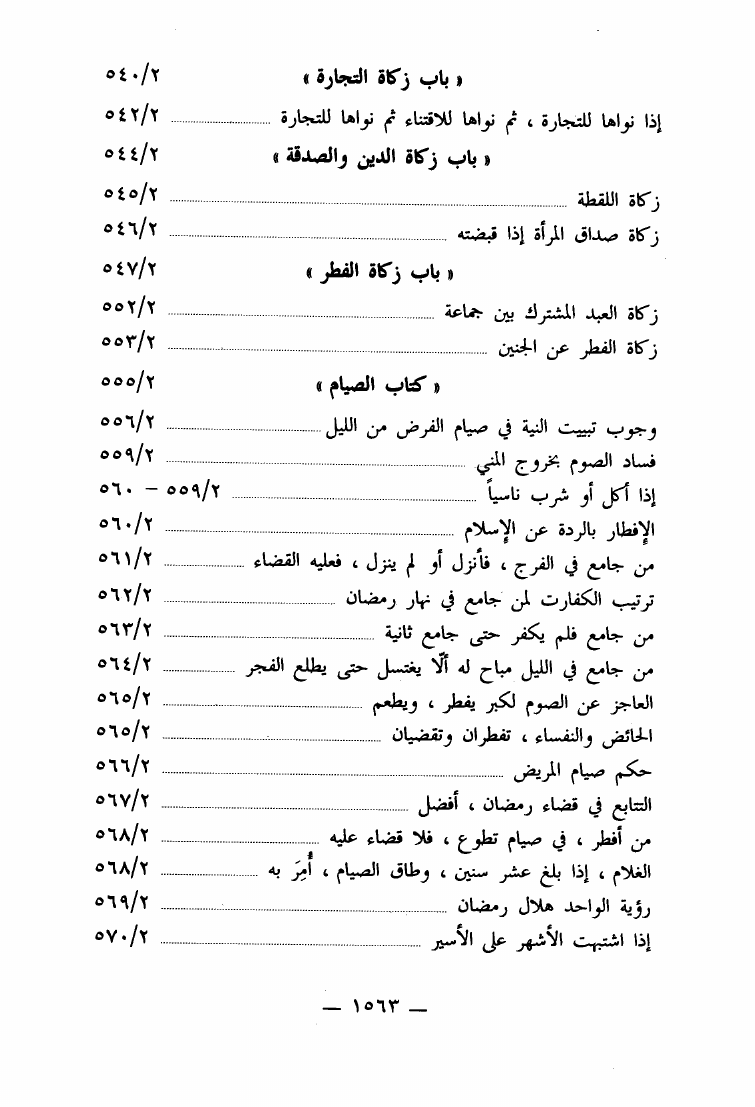 « باب زكاة التجارة » ٥٤٠/٢
إذا نواها للتجارة ، ثم نواها للاقتناء ثم نواها للتجارة ٥٤٢/٢
« باب زكاة الدين والصدقة » ٥٤٤/٢
زكاة اللقطة ٥٤٥/٢
زكاة صداق المرأة إذا قبضته ٥٤٦/٢
« باب زكاة الفطر » ٥٤٧/٢
زكاة العبد المشترك بين جماعة ٥٥٢/٢
زكاة الفطر عن الجنين ٥٥٣/٢
« كتاب الصيام » ٥٥٥/٢
وجوب تبييت النية في صيام الفرض من الليل ٥٥٦/٢
فساد الصوم بخروج المني ٥٥٩/٢
إذا أكل أو شرب ناسياً ٥٥٩/٢ – ٥٦٠
الإفطار بالردة عن الإسلام ٥٦٠/٢
من جامع في الفرج ، فأنزل أو لم ينزل ، فعليه القضاء ٥٦١/٢
ترتيب الكفارت لمن جامع في نهار رمضان ٥٦٢/٢
من جامع فلم يكفر حتى جامع ثانية ٥٦٣/٢
من جامع في الليل مباح له ألّا يغتسل حتى يطلع الفجر ٥٦٤/٢
العاجز عن الصوم لكبر يفطر ، ويطعم ٥٦٥/٢
الحائض والنفساء ، تفطران وتقضيان ٥٦٥/٢
حكم صيام المريض ٥٦٦/٢
التتابع في قضاء رمضان ، أفضل ٥٦٧/٢
من أفطر ، في صيام تطوع ، فلا قضاء عليه ٥٦٨/٢
الغلام ، إذا بلغ عشر سنين ، وطاق الصيام ، أُمِرَ به ٥٦٨/٢
رؤية الواحد هلال رمضان ٥٦٩/٢
إذا اشتبهت الأشهر على الأسير ٥٧٠/٢
— ١٥٦٣ —